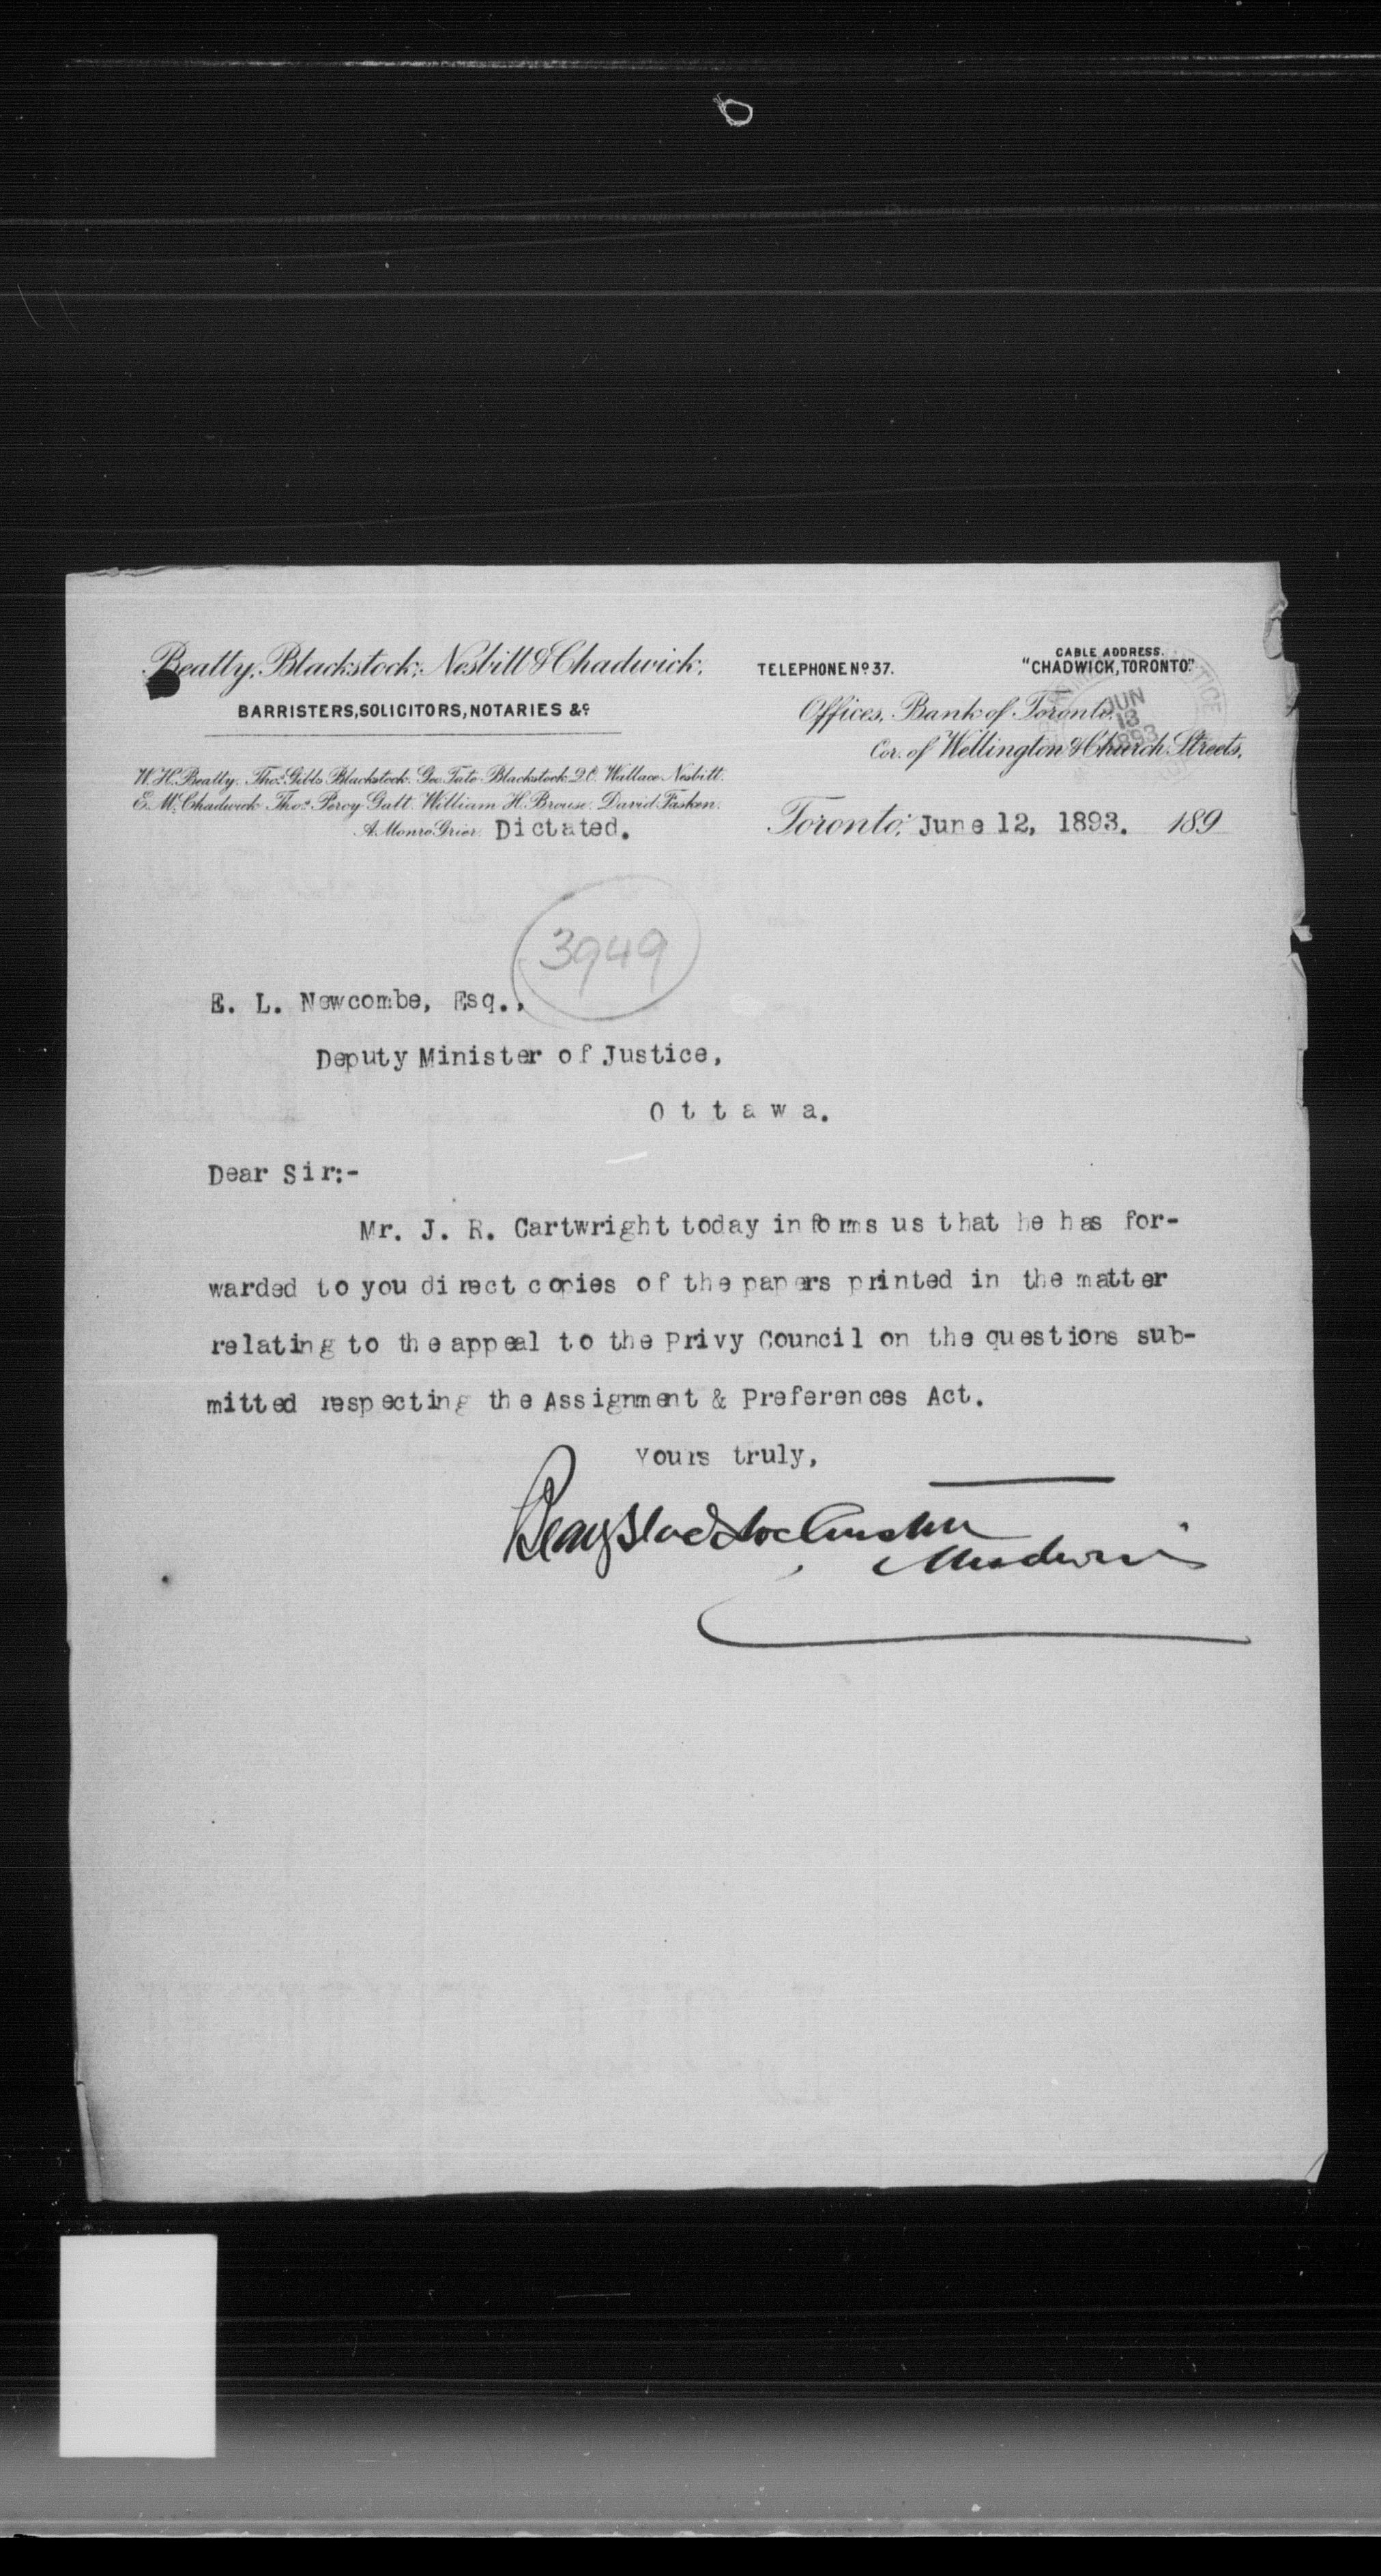 Beatty, Blackstock, Nesbitt & Chadwick,
BARRISTERS, SOLICITORS, NOTARIES &c
W. H. Beatty. Thos. Gibbs Blackstock. Geo. Tate Blackstock Q.C. Wallace Nesbitt.
E. M. Chadwick. Thos. Percy Galt. William H. Brouse. David Fasken.
A. Monro Grier. Dictated.
TELEPHONE No 37.
CABLE ADDRESS.
"CHADWICK, TORONTO."
Offices, Bank of Toronto,
Cor. of Wellington & Church Streets,
JUN
13
1893
Toronto, June 12, 1893. 189
3949
E. L. Newcombe, Esq.,
Deputy Minister of Justice,
O t t a w a.
Dear Sir:-
Mr. J. R. Cartwright today informs us that he has for-
warded to you direct copies of the papers printed in the matter
relating to the appeal to the Privy Council on the questions sub-
mitted respecting the Assignment & Preferences Act.
Yours truly,